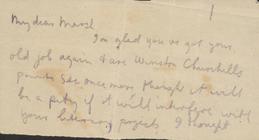 1
My dear Marsh
I'm glad you've got your
old job again & are Winston Churchills
once more though it will
be a pity if it will interfere with
your literary projects. I thought